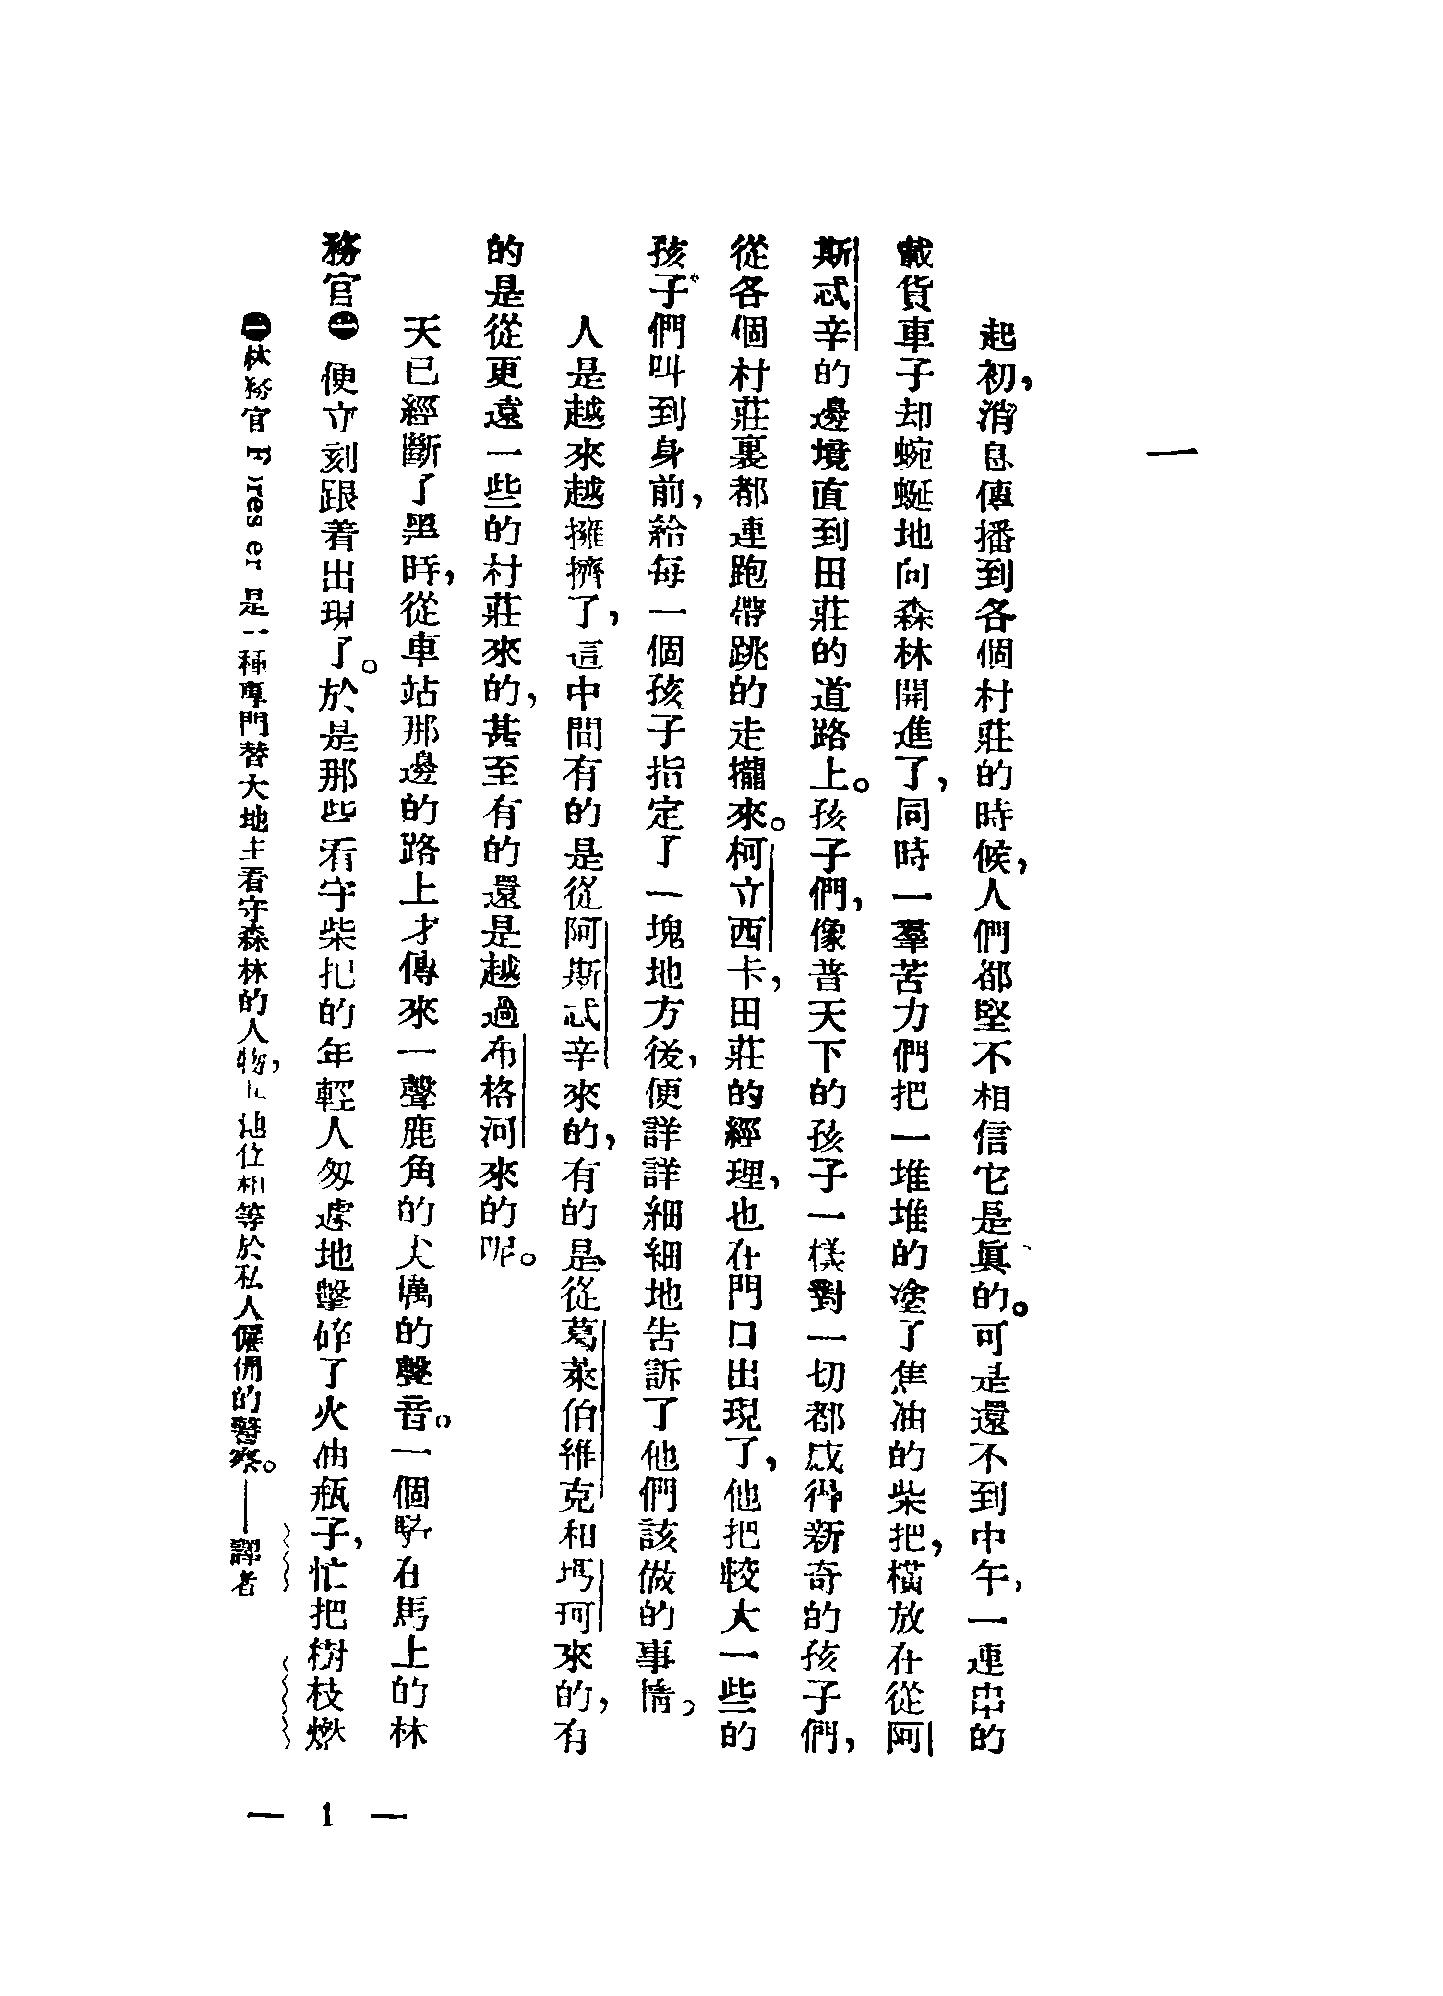 一
起初，消息傳播到各個村莊的時候，人們都堅不相信它是眞的。可是還不到中午，一連串的
載貨車子却蜿蜒地向森林開進了，同時一羣苦力們把一堆堆的塗了焦油的柴把，橫放在從阿
斯忒辛的邊境直到田莊的道路上。孩子們，像普天下的孩子一樣對一切都感得新奇的孩子們，
從各個村莊裏都連跑帶跳的走攏來。柯立西卡，田莊的經理，也在門口出現了，他把較大一些的
孩子們叫到身前，給每一個孩子指定了一塊地方後，便詳詳細細地告訴了他們該做的事情。
人是越來越擁擠了，這中間有的是從阿斯忒辛來的，有的是從葛萊伯維克和瑪珂來的，有
的是從更遠一些的村莊來的，甚至有的還是越過布格河來的呢。
天已經斷了黑時，從車站那邊的路上才傳來一聲鹿角的大喇的聲音。一個騎在馬上的林
務官㊀便立刻跟着出現了。於是那些看守柴把的年輕人匆遽地擊碎了火油瓶子，忙把樹枝燃
㊀林務官 Fores er 是一種專門替大地主看守森林的人物，地位相等於私人僱佣的警察。——譯者
— 1 —